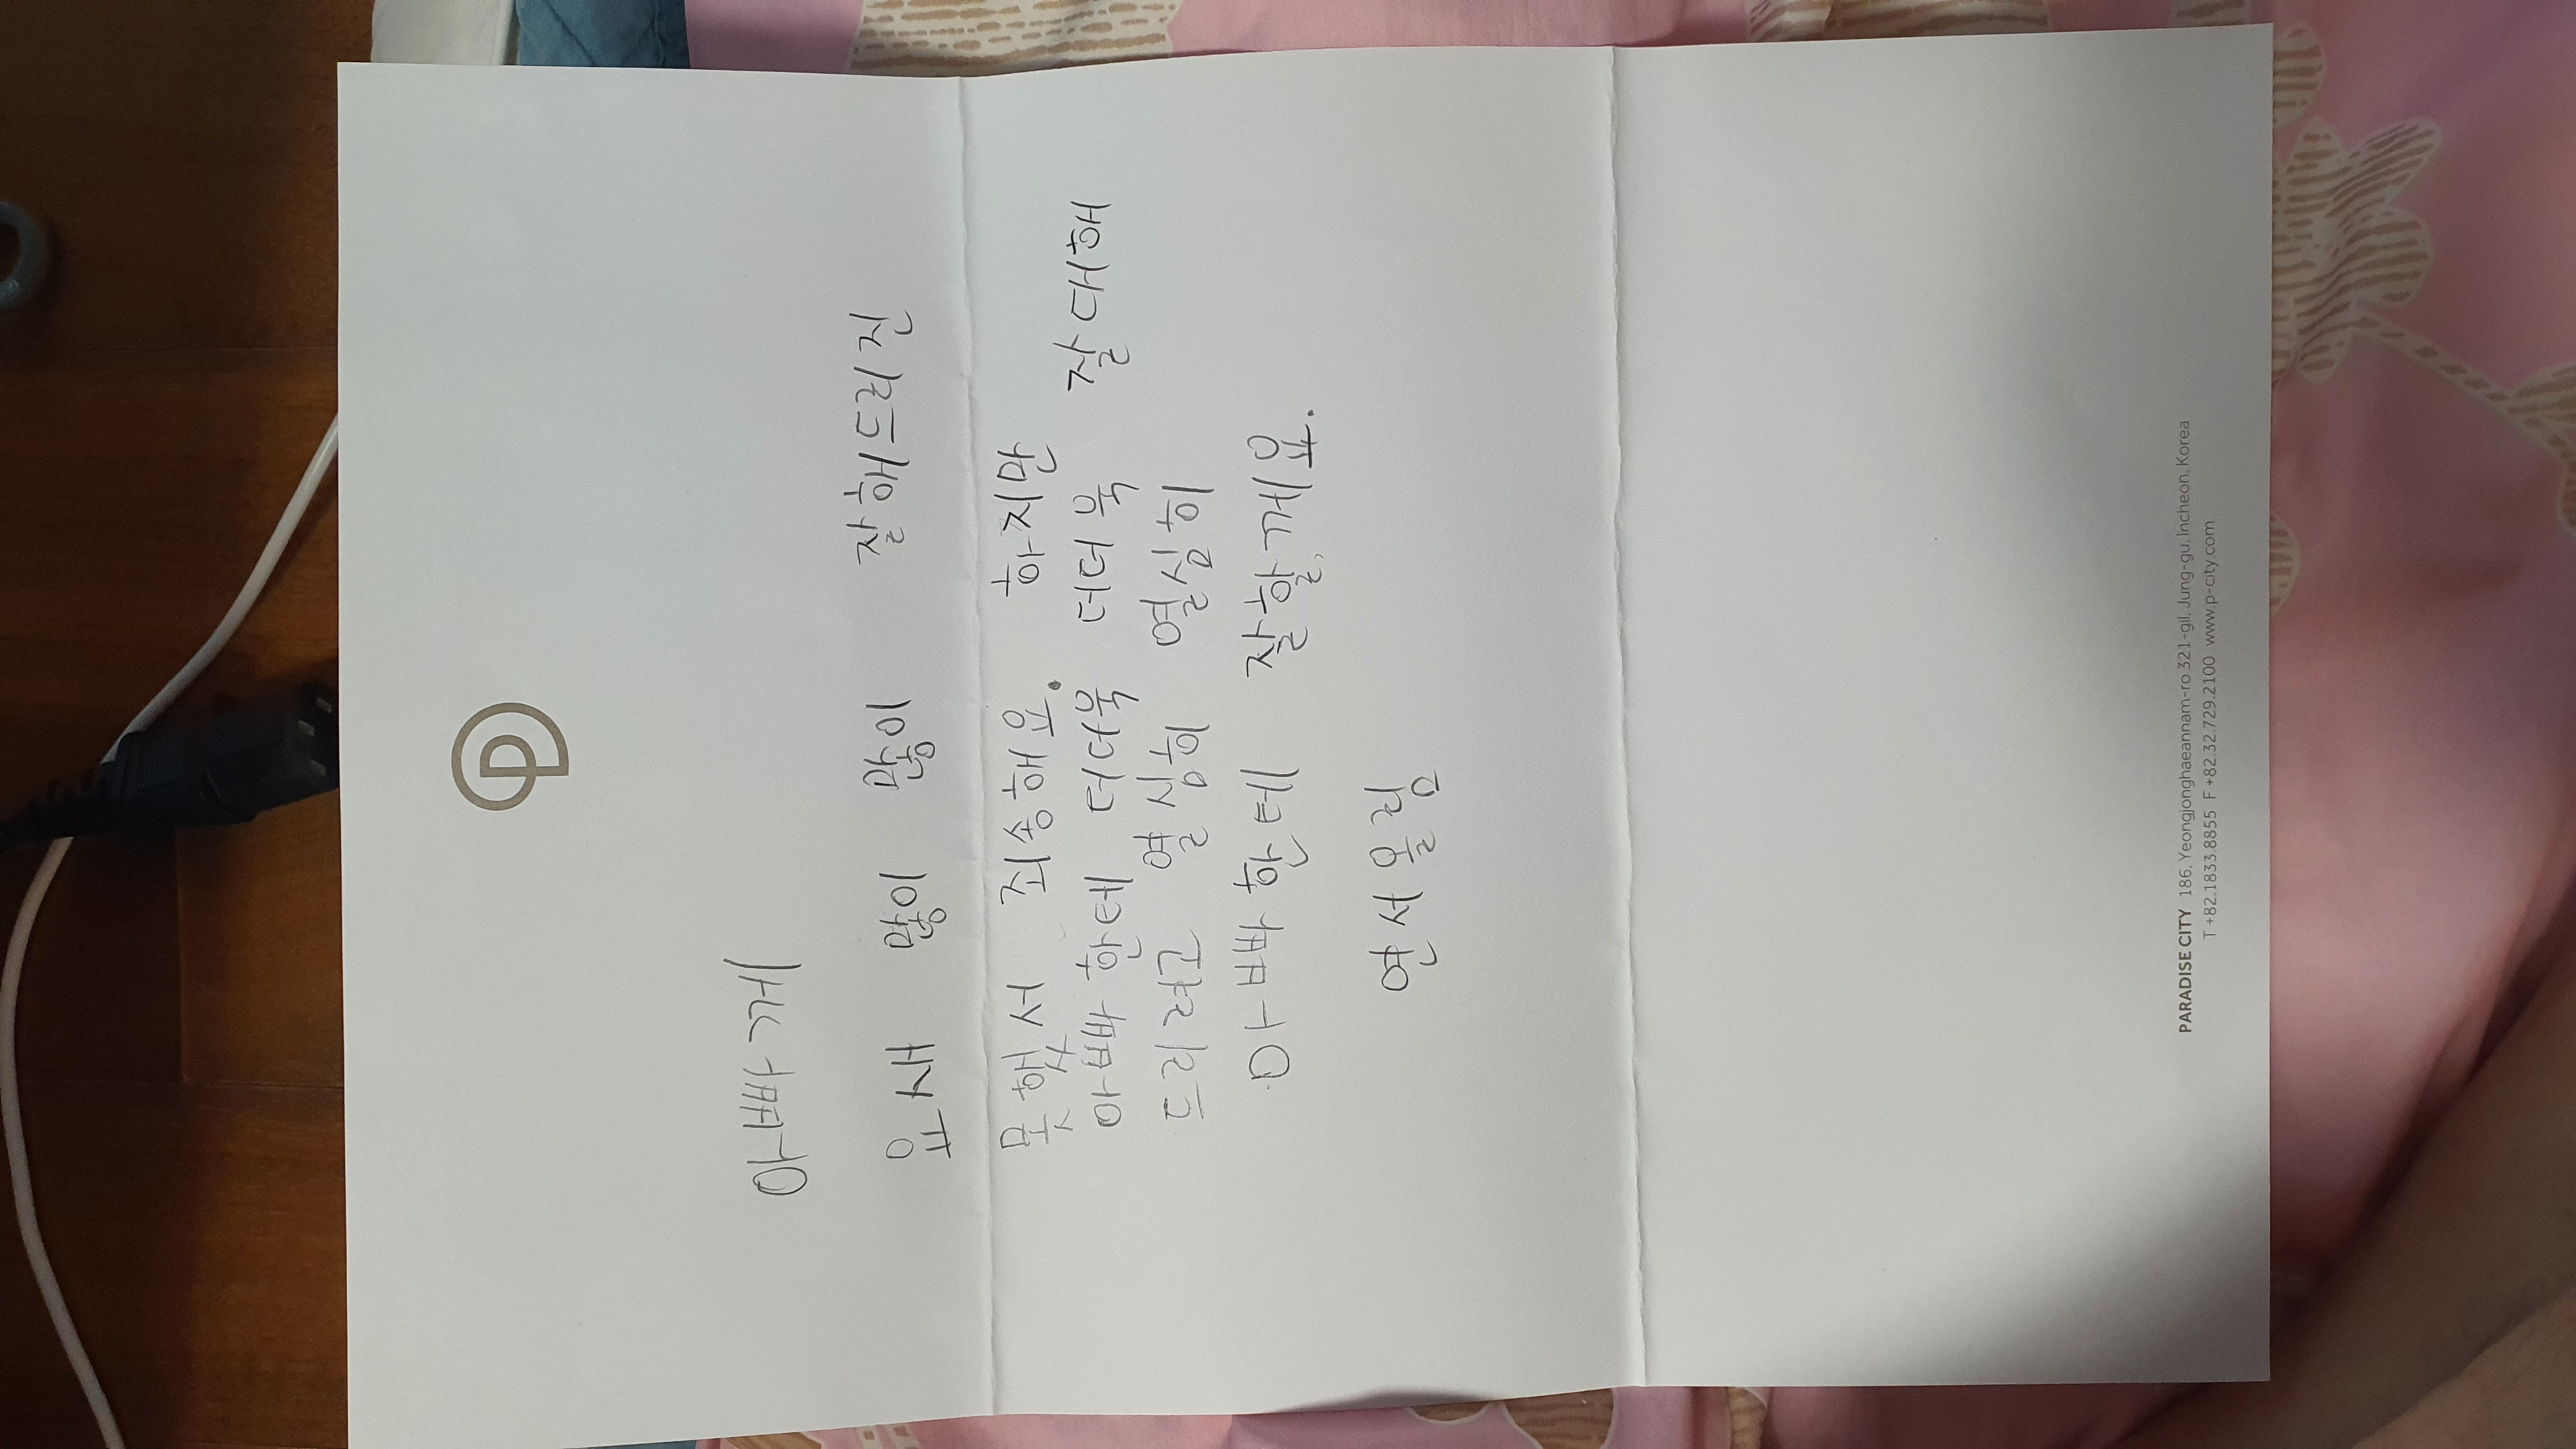 아빠께
요새 많이 많이 잘해드리진
못햇서 죄송해요. 하지만
아빠한테 더더욱 더더욱 잘대해
드리려고 열심히 열심히
아빠한테 잘할께요.
연서올림
PARADISE CITY 186, Yeongjonghaeannam-ro 321-gil, Jung-gu, Incheon, Korea
T +82.1833.8855 F +82.32.729.2100 www.p-city.com